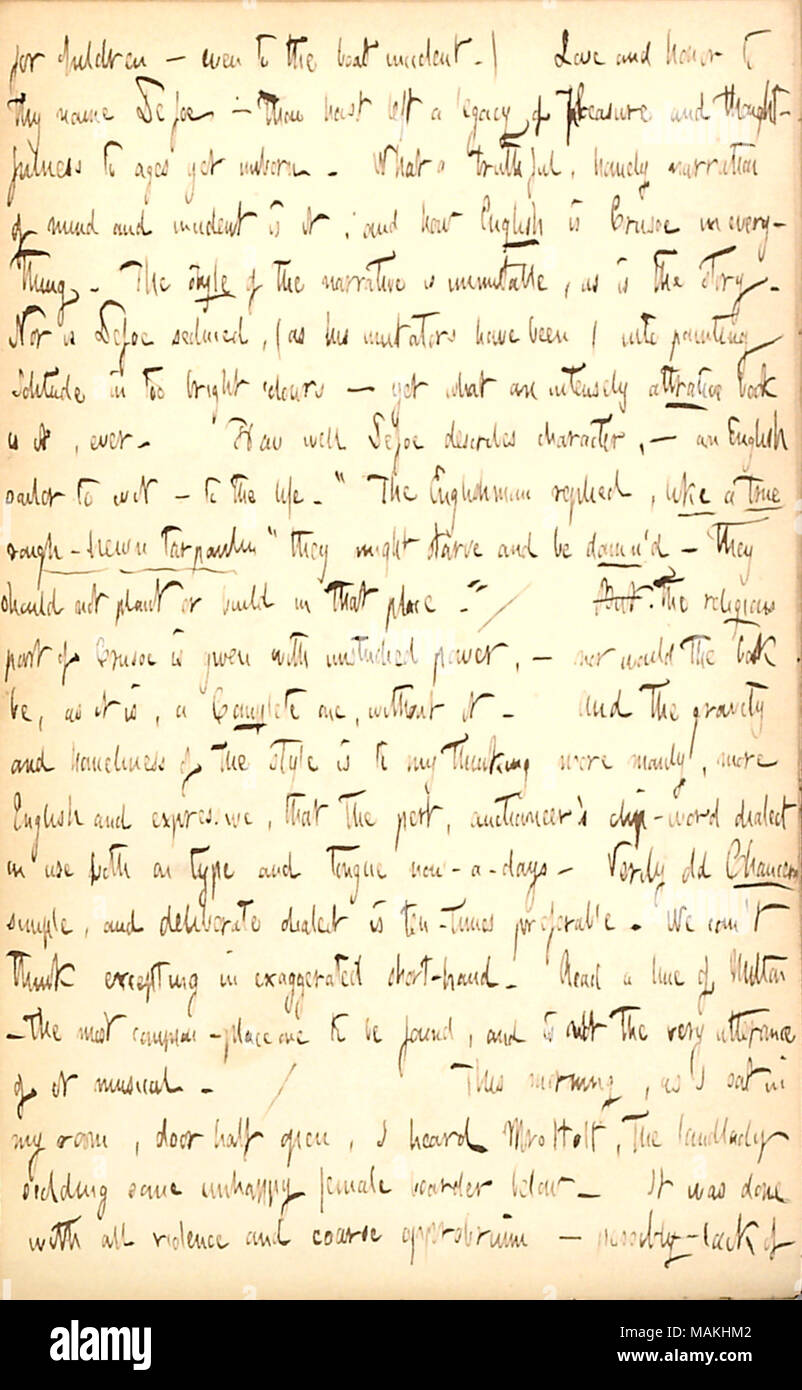 for children — even to the boat incident.) Love and honor to
thy name DeFoe :— thou hast left a legacy of pleasure and thought-
fulness to ages yet unborn. What a truthful, homely narration
of mind and incident is it ; and how English is Crusoe in every-
thing. The style of the narrative is inimitable, as is the story.
Nor is DeFoe seduced, (as his imitators have been) into painting
Solitude in too bright colours — yet what an intensely attrative book
is it, ever. How well DeFoe describes character, — an English
sailor to wit — to the life. " The Englishman replied, like a true
rough-hewn tarpaulin " they might starve and be damn'd — they
should not plant or build in that place." / But The religious
part of Crusoe is given with unstudied power, — nor would the book
be, as it is, a Complete one, without it. And the gravity
and homeliness of the style is to my thinking more manly, more
English and expressive, that the pert, auctioneer's clip-word dialect
in use both on type and tongue now-a-days. Verily old Chaucers
simple, and deliberate dialect is ten-times preferable. We can't
think excepting in exaggerated short-hand. Read a line of Milton
— the most common-place one to be found, and is not the very utterance
of it musical. / This morning, as I sat in
my room, door half open, I heard Mrs Holt, the landlady
scolding some unhappy female boarder below. It was done
with all violence and coarse opprobrium — possibly lack of
alamy
Image ID: MAKHM2
www.alamy.com